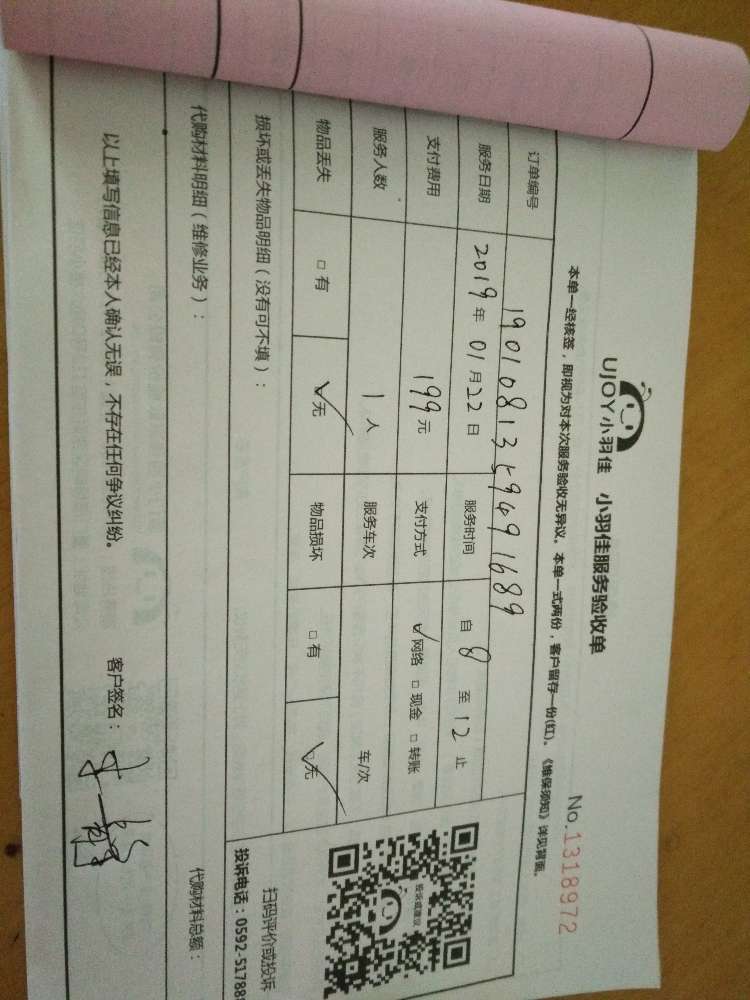 UJOY小羽佳 小羽佳服务验收单
No.1318972
本单一经核签，即视为对本次服务验收无异议。本单一式两份，客户留存一份(红)。《维保须知》详见背面。
订单编号 1901081359491689
服务日期 2019年01月22日 服务时间 自8至12止
支付费用 199元 支付方式 ☑网络 □现金 □转账
服务人数 1人 服务车次 车/次
物品丢失 □有 ☑无 物品损坏 □有 ☑无
投诉或建议
扫码评价或投诉
投诉电话：0592-517888
损坏或丢失物品明细（没有可不填）：
代购材料明细（维修业务）： 代购材料总额：
以上填写信息已经本人确认无误，不存在任何争议纠纷。 客户签名：